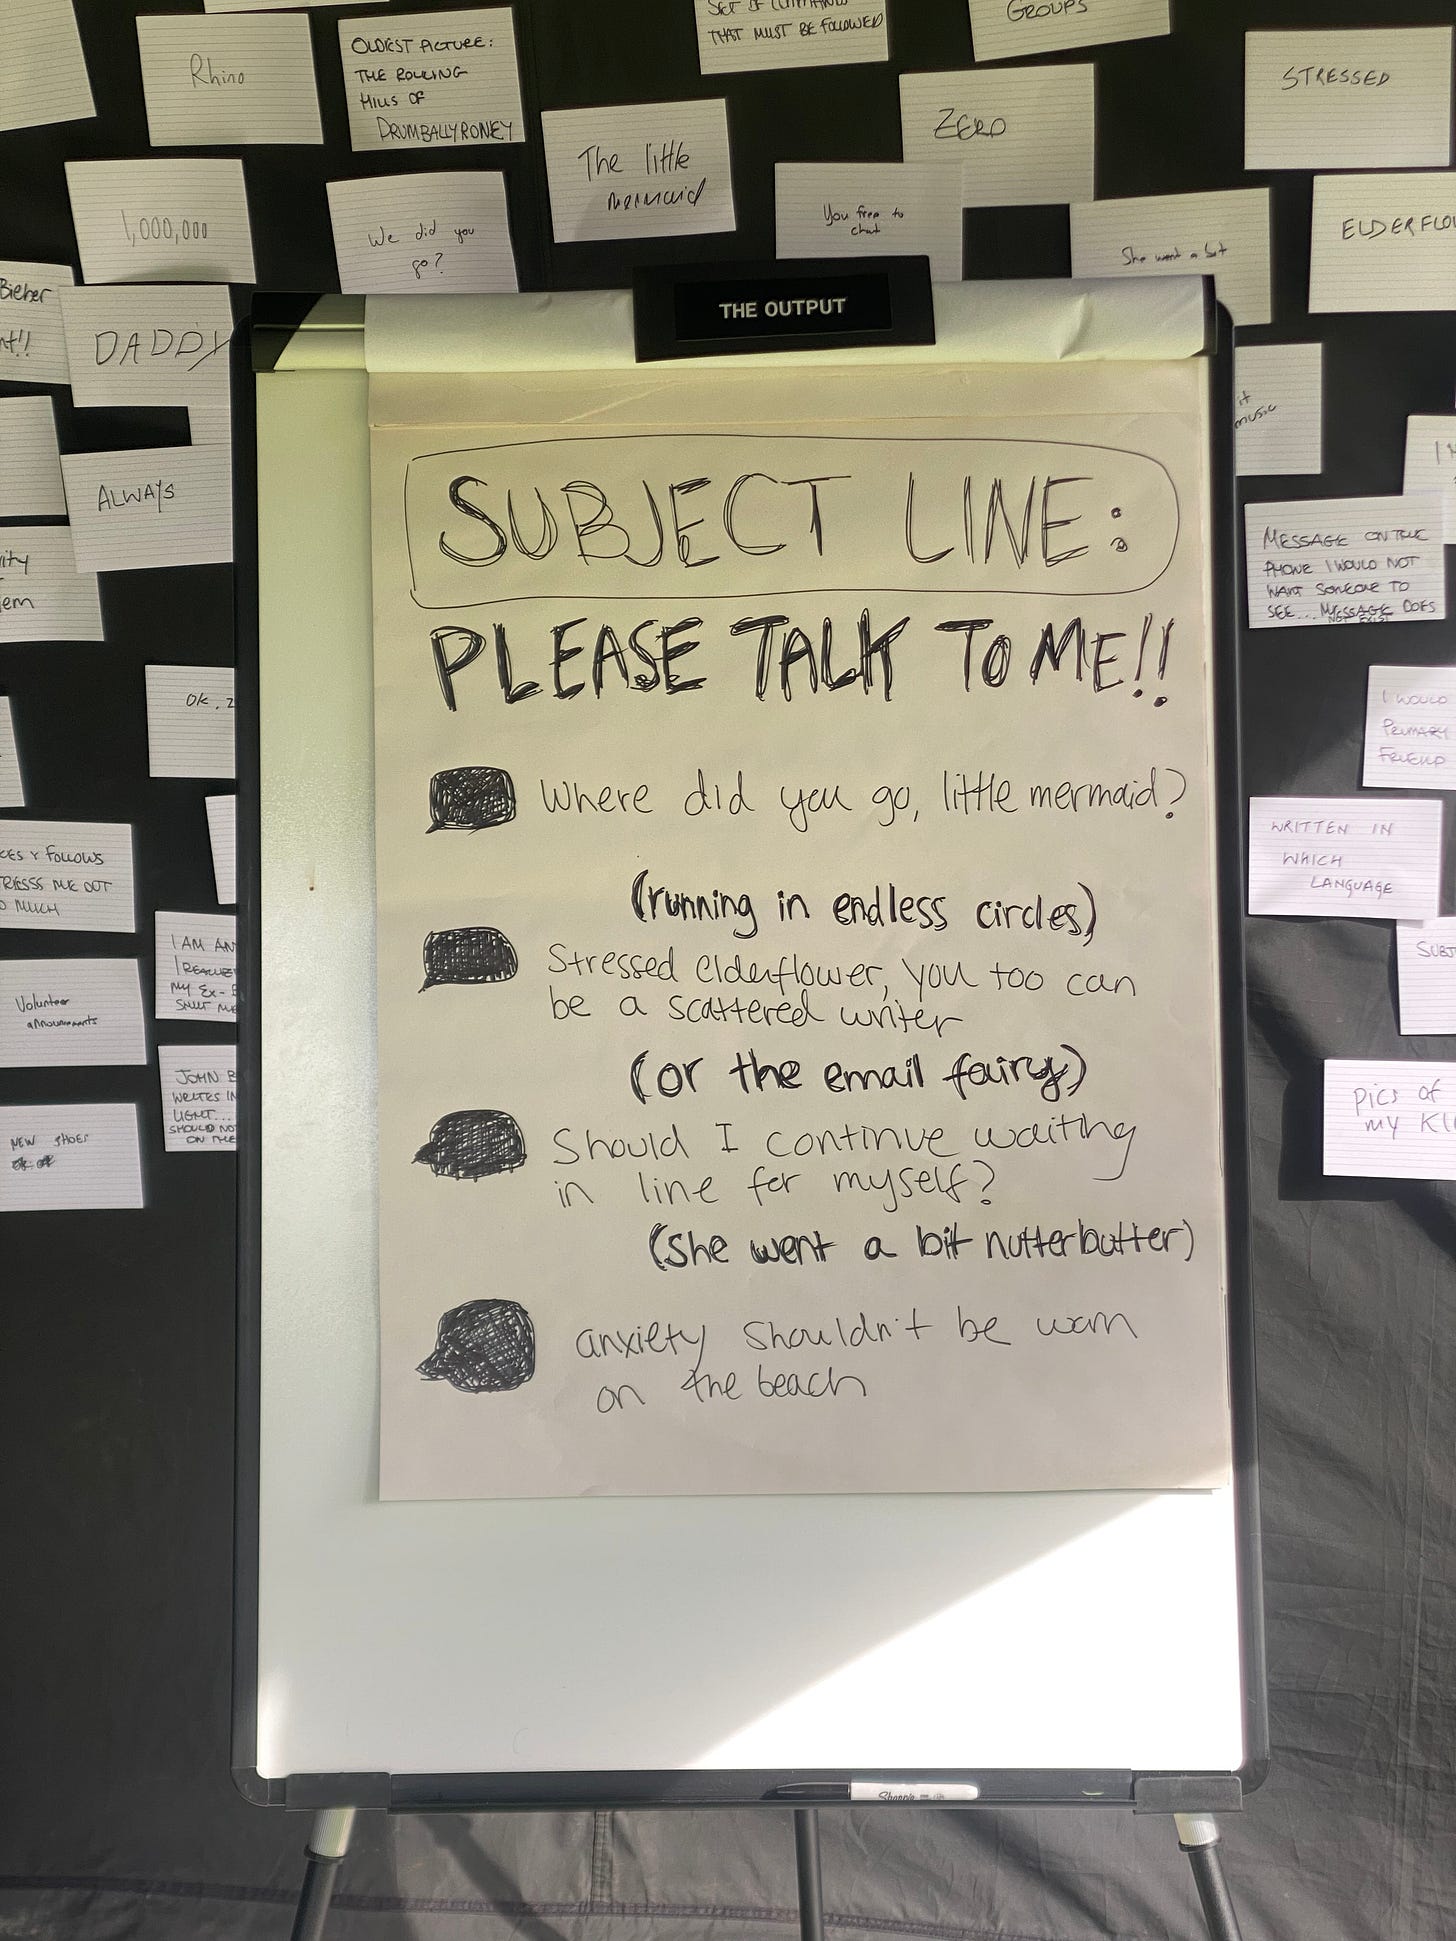 SET OF COMMANDS
THAT MUST BE FOLLOWED
GROUPS
Rhino
OLDEST PICTURE:
THE ROLLING
HILLS OF
DRUMBALLYRONEY
The little
mermaid
ZERO
STRESSED
1,000,000
We did you
go?
You free to
chat
She went a bit
ELDERFLO
Bieber
nt!!
DADDY
THE OUTPUT
ALWAYS
it
music
SUBJECT LINE:
PLEASE TALK TO ME!!
Where did you go, little mermaid?
(running in endless circles)
Stressed elderflower, you too can
be a scattered writer
(or the email fairy)
Should I continue waiting
in line for myself?
(she went a bit nutterbutter)
anxiety shouldn't be worn
on the beach
MESSAGE ON THE
PHONE I WOULD NOT
WANT SOMEONE TO
SEE... MESSAGE DOES
NOT EXIST
ity
em
OK, 2
I WOULD
PRIMARY
FRIEND
WRITTEN IN
WHICH
LANGUAGE
KES & FOLLOWS
STRESSS ME OUT
SO MUCH
I AM AN
I REALIZE
MY EX-B
SHUT ME
SUBJ
Volunteer
announcements
JOHN B
WRITES IN
LIGHT...
SHOULD NOT
ON THE
pics of
my KI
NEW SHOES
Sharpie